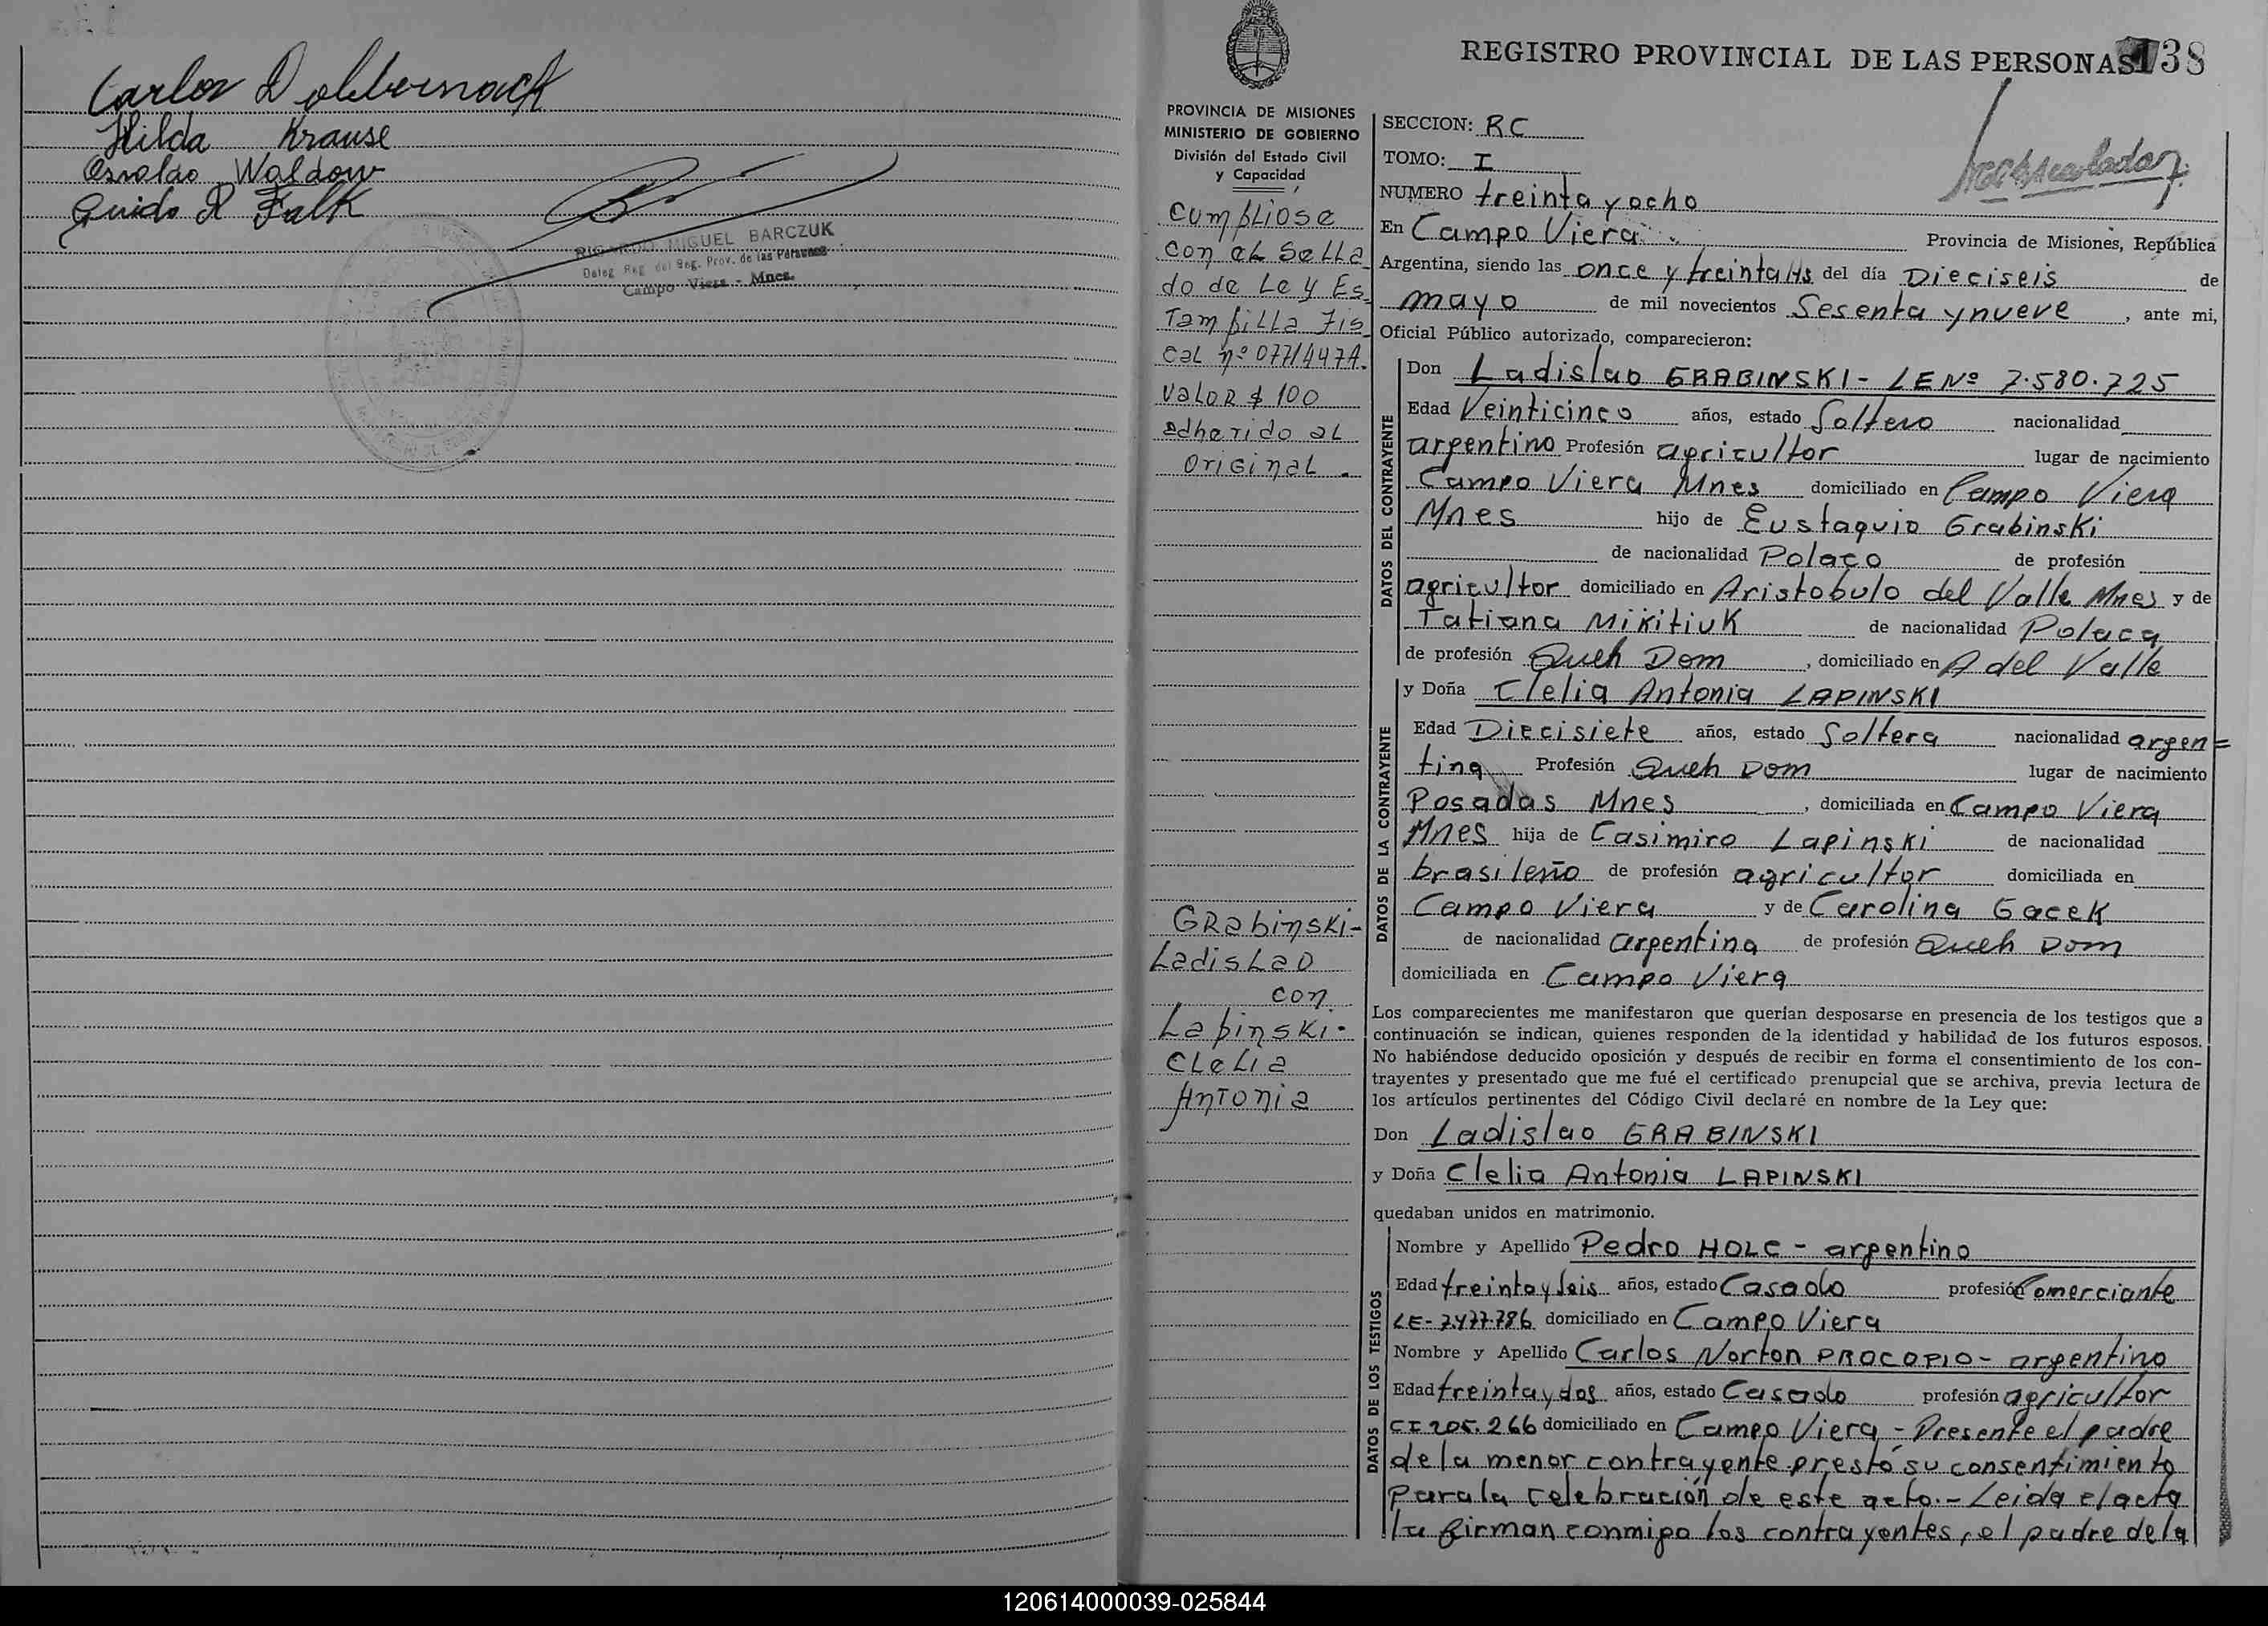 Carlos Dobbernack
Hilda Krause
Osvaldo Waldow
Guido R Falk
RICARDO MIGUEL BARCZUK
Deleg Reg del Reg. Prov. de las Personas
Campo Viera - Mnes.
REGISTRO PROVINCIAL DE LAS PERSONAS 138
PROVINCIA DE MISIONES
MINISTERIO DE GOBIERNO
División del Estado Civil
y Capacidad
Cumpliose
con el Sella
do de Ley Es
Tampilla Fis
cal nº 0771447A.
Valor $ 100
adherido al
original.
Grabinski-
Ladislao
con
Lapinski.
Clelia
Antonia
SECCION: RC
TOMO: I
NUMERO treinta y ocho
En Campo Viera Provincia de Misiones, República
Argentina, siendo las once y treinta Hs del día Dieciseis de
mayo de mil novecientos Sesenta y nueve, ante mi,
Oficial Público autorizado, comparecieron:
DATOS DEL CONTRAYENTE
Don Ladislao GRABINSKI - LE Nº 7.580.725
Edad Veinticinco años, estado Soltero nacionalidad
argentino Profesión agricultor lugar de nacimiento
Campo Viera Mnes domiciliado en Campo Viera
Mnes hijo de Eustaquio Grabinski
de nacionalidad Polaco de profesión
agricultor domiciliado en Aristobulo del Valle Mnes y de
Tatiana Mikitiuk de nacionalidad Polaca
de profesión Queh Dom, domiciliado en A del Valle
DATOS DE LA CONTRAYENTE
y Doña Clelia Antonia LAPINSKI
Edad Diecisiete años, estado Soltera nacionalidad argen=
tina Profesión Queh Dom lugar de nacimiento
Posadas Mnes, domiciliada en Campo Viera
Mnes hija de Casimiro Lapinski de nacionalidad
brasileño de profesión agricultor domiciliada en
Campo Viera y de Carolina Gacek
de nacionalidad argentina de profesión Queh Dom
domiciliada en Campo Viera
Los comparecientes me manifestaron que querían desposarse en presencia de los testigos que a
continuación se indican, quienes responden de la identidad y habilidad de los futuros esposos.
No habiéndose deducido oposición y después de recibir en forma el consentimiento de los con-
trayentes y presentado que me fué el certificado prenupcial que se archiva, previa lectura de
los artículos pertinentes del Código Civil declaré en nombre de la Ley que:
Don Ladislao GRABINSKI
y Doña Clelia Antonia LAPINSKI
quedaban unidos en matrimonio.
DATOS DE LOS TESTIGOS
Nombre y Apellido Pedro HOLC - argentino
Edad treinta y seis años, estado Casado profesión Comerciante
LE- 7.477.786 domiciliado en Campo Viera
Nombre y Apellido Carlos Norton PROCOPIO - argentino
Edad treinta y dos años, estado Casado profesión agricultor
CI 205.266 domiciliado en Campo Viera - Presente el padre
de la menor contrayente prestó su consentimiento
para la celebración de este acto.- Leida el acta
la firman conmigo los contrayentes, el padre de la
120614000039-025844